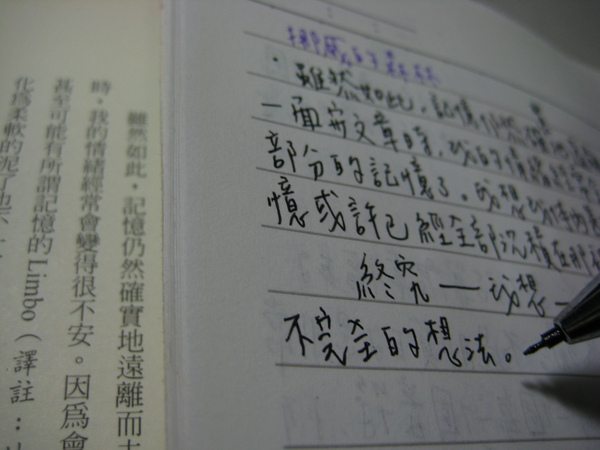 雖然如此，記憶仍然確實地遠離而去
時，我的情緒經常會變得很不安。因為會
甚至可能有所謂記憶的Limbo（譯註：
化為柔軟的泥了也不
挪威的森林
·雖然如此，記憶仍然確實地遠離
一面寫文章時，我的情緒經常會
部分的記憶了。我想我體內
憶或許已經全部沉積在那
終究—我想—
不完全的想法。